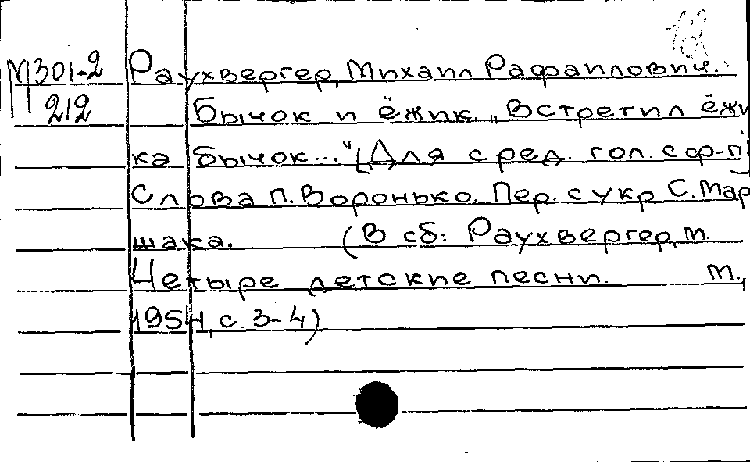 М301-2 Раухвергер, Михаил Рафаилович.
212 Бычок и ёжик. „Встретил ёжи
ка бычок..." (Для сред. гол. с ф-п)
Слова П. Воронько. Пер. с укр С. Мар
шака. (В сб: Раухвергер, М.
Четыре детские песни. М.,
1954, с. 3-4)